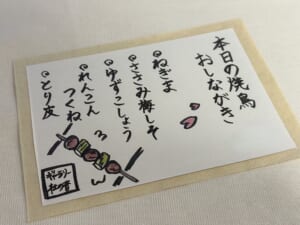 本日の焼鳥
おしながき
ねぎま
ささみ梅しそ
ゆずこしょう
れんこん
つくね
とり皮
ギャラリー